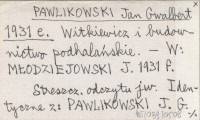 PAWLIKOWSKI Jan Gwalbert
1931 e. Witkiewicz i budow-
nictwo podhalańskie. – W:
MŁODZIEJOWSKI J. 1931 f.
Streszcz. odczytu jw. Iden-
tyczne z: PAWLIKOWSKI J. G.